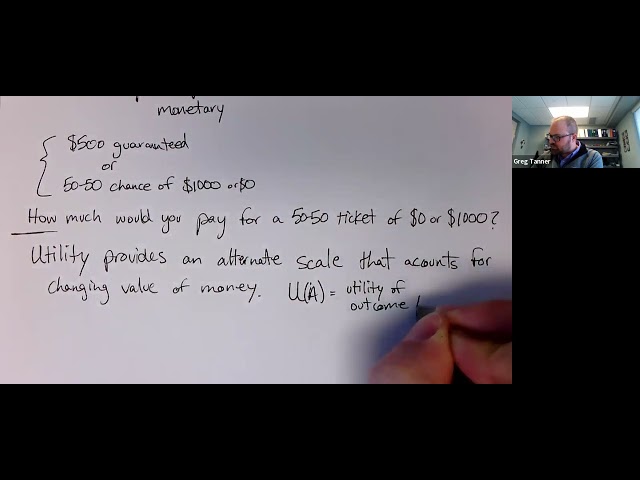 monetary
$500 guaranteed
or
50-50 chance of $1000 or $0
How much would you pay for a 50-50 ticket of $0 or $1000?
Utility provides an alternate scale that acounts for
changing value of money. U(A) = utility of
outcome
Greg Tanner